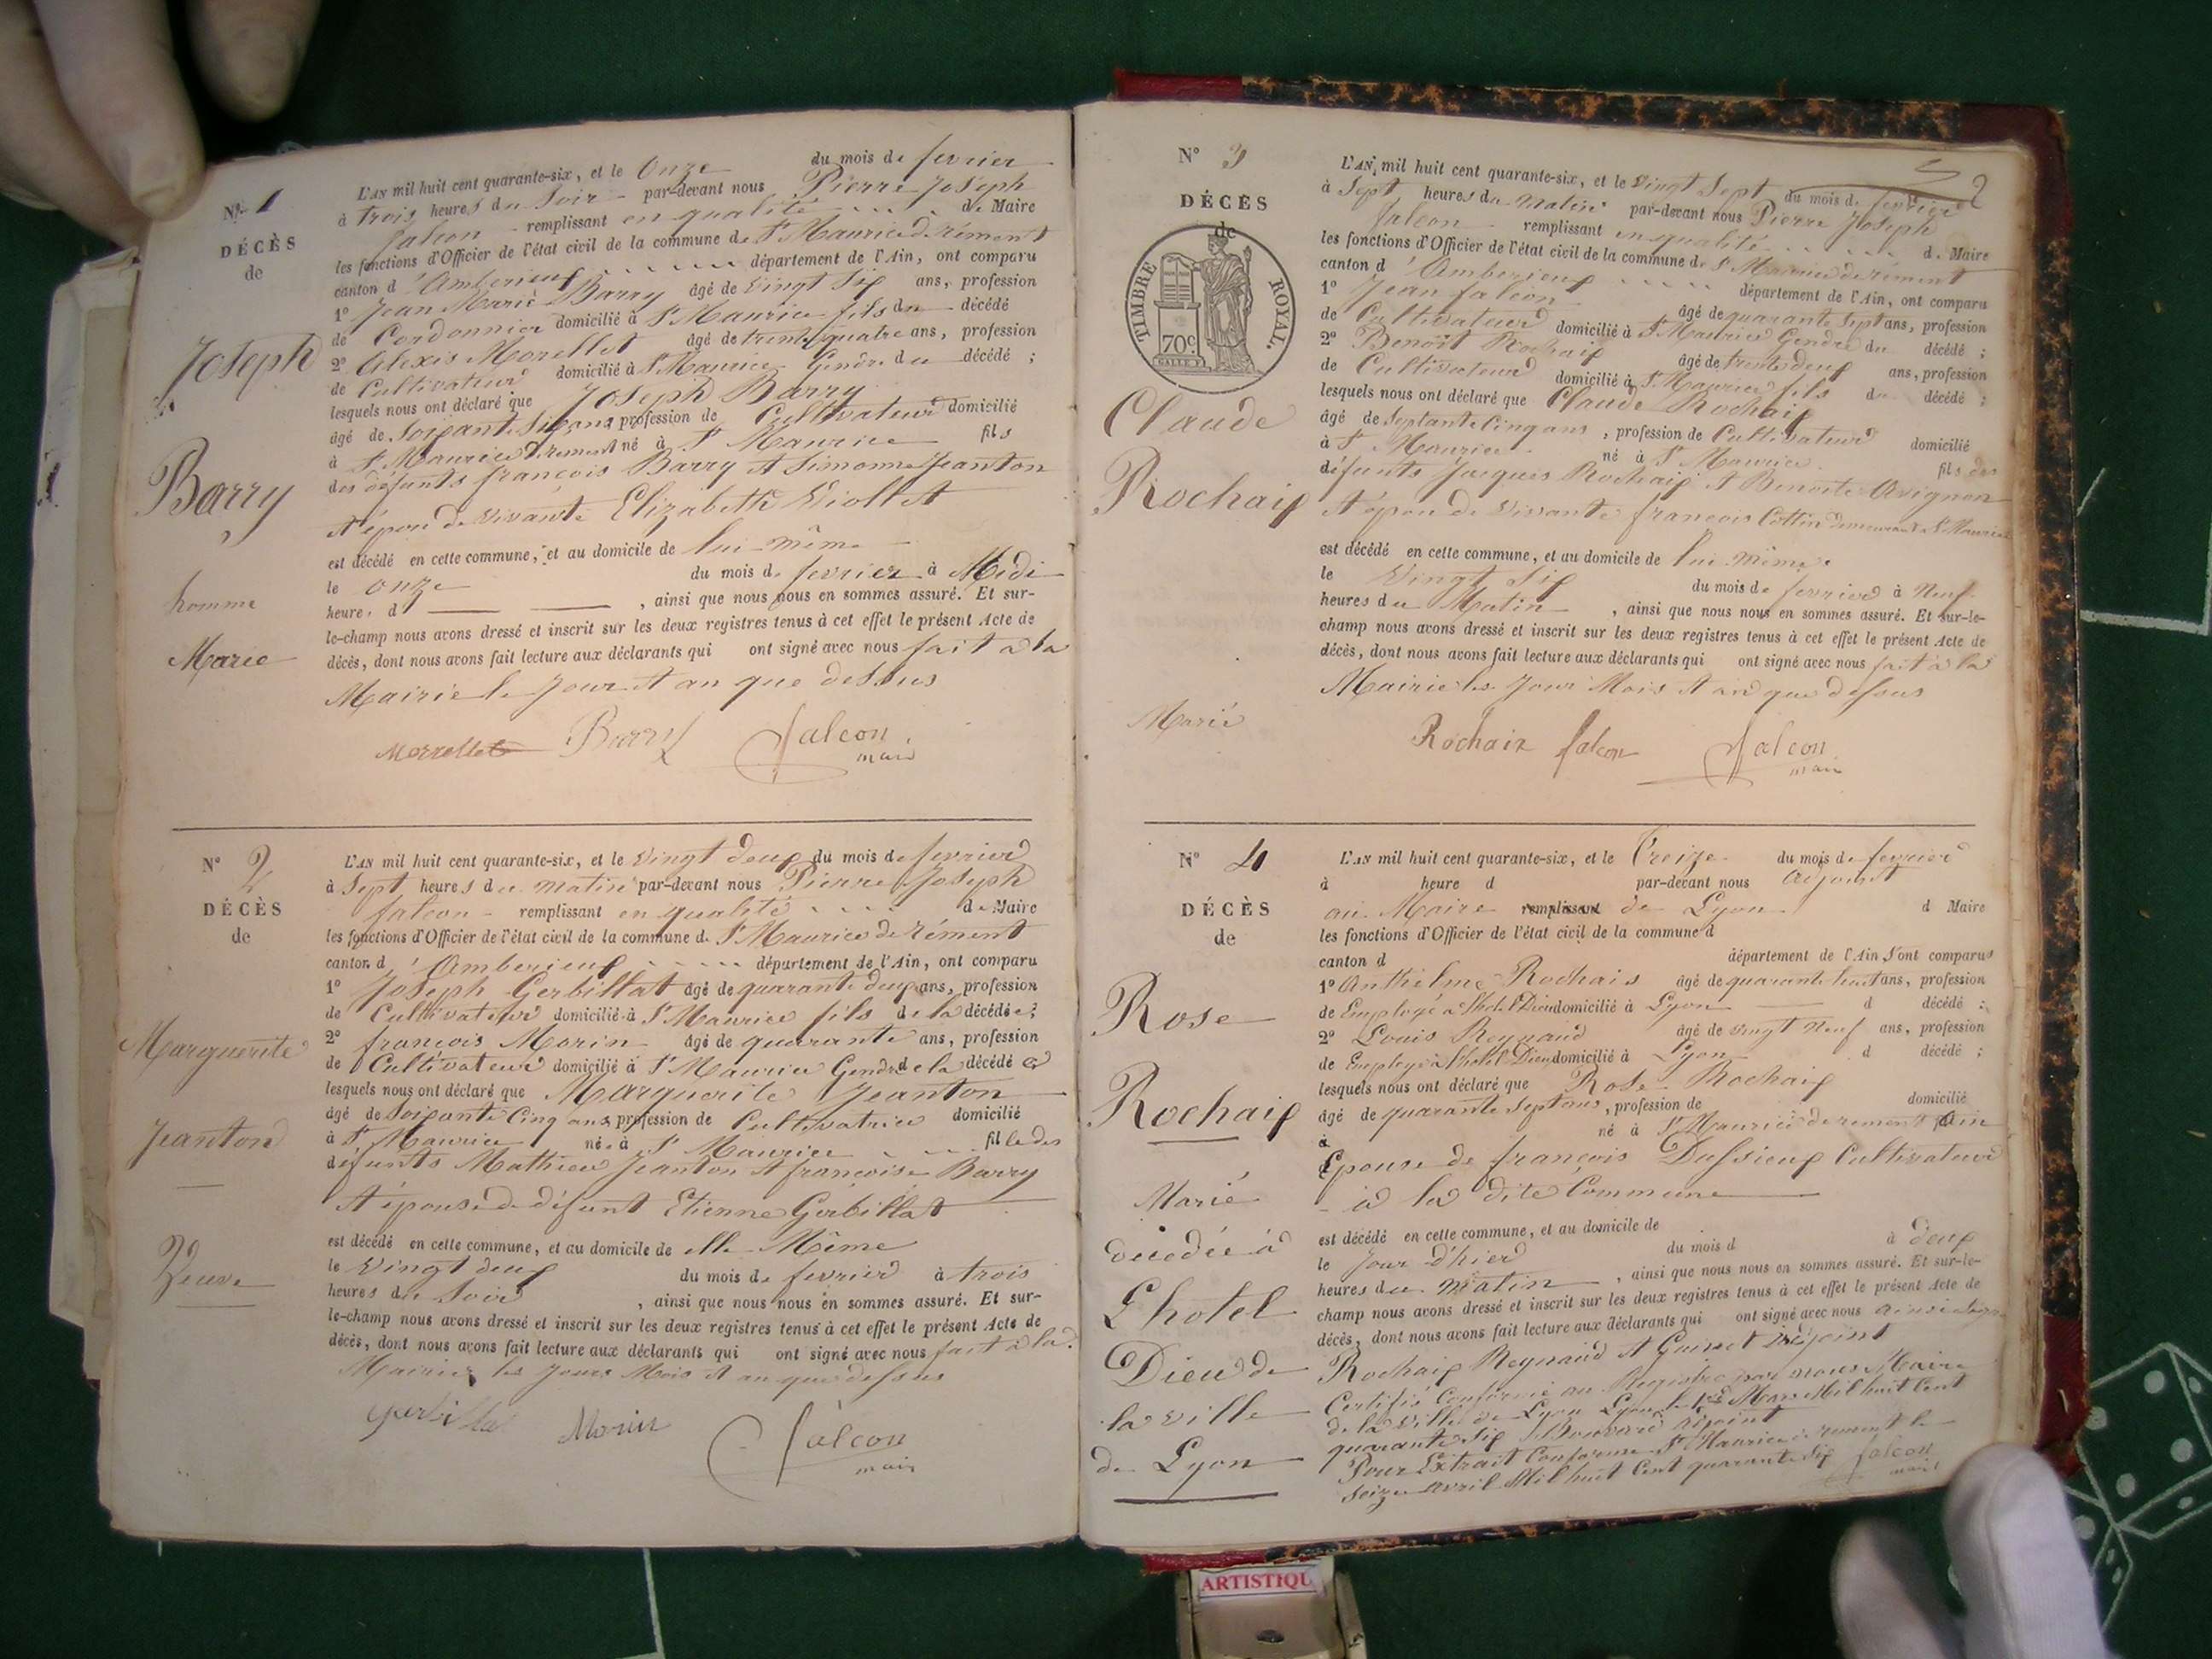 N° 1
DÉCÈS
de
Joseph
Barry
homme
Marié
L'AN mil huit cent quarante-six, et le Onze du mois de fevrier
à trois heures du Soir par-devant nous Pierre Joseph
falcon remplissant en qualité de Maire
les fonctions d'Officier de l'état civil de la commune de St Maurice de rémont
canton d'Amberieux département de l'Ain, ont comparu
1° Jean Marie Barry âgé de Vingt Six ans, profession
de Cordonnier domicilié à St Maurice fils du décédé
2° Alexis Morellet âgé de trente quatre ans, profession
de Cultivateur domicilié à St Maurice Gendre du décédé ;
lesquels nous ont déclaré que Joseph Barry
âgé de Soixante Six ans profession de Cultivateur domicilié
à St Maurice Dremont né à St Maurice fils
des défunts françois Barry et Simonne Jeanton
et époux de vivante Elizabeth Viollet
est décédé en cette commune, et au domicile de lui même
le onze du mois de fevrier à Midi
heure d , ainsi que nous nous en sommes assuré. Et sur-
le-champ nous avons dressé et inscrit sur les deux registres tenus à cet effet le présent Acte de
décès, dont nous avons fait lecture aux déclarants qui ont signé avec nous fait à la
Mairie le Jour et an que dessus
Morrellet Barry falcon
maire
N° 2
DÉCÈS
de
Marguerite
Jeanton
Veuve
L'AN mil huit cent quarante-six, et le Vingt deux du mois de fevrier
à Sept heures du matin par-devant nous Pierre Joseph
falcon remplissant en qualité de Maire
les fonctions d'Officier de l'état civil de la commune de St Maurice de Rémont
canton d'Amberieux département de l'Ain, ont comparu
1° Joseph Gerbillat âgé de quarante deux ans, profession
de Cultivateur domicilié à St Maurice fils de la décédée ;
2° françois Morin âgé de quarante ans, profession
de Cultivateur domicilié à St Maurice Gendre de la décédé e
lesquels nous ont déclaré que Marguerite Jeanton
âgé de Soixante Cinq ans, profession de Cultivatrice domicilié
à St Maurice né à St Maurice fille des
défunts Mathieu Jeanton et françoise Barry
et épouse de défunt Etienne Gerbillat
est décédé en cette commune, et au domicile de elle Même
le Vingt deux du mois de fevrier à trois
heures du Soir , ainsi que nous nous en sommes assuré. Et sur-
le-champ nous avons dressé et inscrit sur les deux registres tenus à cet effet le présent Acte de
décès, dont nous avons fait lecture aux déclarants qui ont signé avec nous fait à la
Mairie les Jours Mois et an que dessus
Morin falcon
maire
2
N° 3
DÉCÈS
de
TIMBRE ROYAL.
70c
Claude
Rochaix
Marié
L'AN mil huit cent quarante-six, et le Vingt Sept du mois de fevrier
à Sept heures du matin par-devant nous Pierre Joseph
falcon remplissant en qualité de Maire
les fonctions d'Officier de l'état civil de la commune de St Maurice de rémont
canton d'Amberieux département de l'Ain, ont comparu
1° Jean falcon âgé de quarante Sept ans, profession
de Cultivateur domicilié à St Maurice Gendre du décédé ;
2° Benoit Rochaix âgé de trente deux ans, profession
de Cultivateur domicilié à St Maurice fils du décédé ;
lesquels nous ont déclaré que Claude Rochaix
âgé de Septante Cinq ans , profession de Cultivateur domicilié
à St Maurice né à St Maurice fils des
défunts Jacques Rochaix et Benoite Avignon
et époux de Vivante françois Cottin demeurant à St Maurice
est décédé en cette commune, et au domicile de lui même
le Vingt Six du mois de fevrier à Neuf
heures du Matin , ainsi que nous nous en sommes assuré. Et sur-le-
champ nous avons dressé et inscrit sur les deux registres tenus à cet effet le présent Acte de
décès, dont nous avons fait lecture aux déclarants qui ont signé avec nous fait à la
Mairie les Jour Mois et an que dessus
Rochaix falcon falcon
maire
N° 4
DÉCÈS
de
Rose
Rochaix
Marié
décédée à
L'hotel
Dieu de
la ville
de Lyon
L'AN mil huit cent quarante-six, et le Treize du mois de fevrier
à heure d par-devant nous adjoint
au Maire remplissant de Lyon d Maire
les fonctions d'Officier de l'état civil de la commune d
canton d département de l'Ain Sont comparus
1° Anthelme Rochais âgé de quarante huit ans, profession
de Employé à l'hotel Dieu domicilié à Lyon d décédé ;
2° Louis Reynaud âgé de Vingt Neuf ans, profession
de Employé à l'hotel Dieu domicilié à Lyon d décédé ;
lesquels nous ont déclaré que Rose Rochaix
âgé de quarante Sept ans , profession de domicilié
à né à St Maurice de remont Ain
Epouse de françois Dussieux Cultivateur
à la dite Commune
est décédé en cette commune, et au domicile de
le Jour d'hier du mois d à deux
heures du matin , ainsi que nous nous en sommes assuré. Et sur-le-
champ nous avons dressé et inscrit sur les deux registres tenus à cet effet le présent Acte de
décès, dont nous avons fait lecture aux déclarants qui ont signé avec nous ainsi signé
Rochaix Reynaud et Guinet adjoint
Certifié Conforme au Registre par nous Maire
de la Ville de Lyon Lyon le Mars Mil huit Cent
quarante Six adjoint
Pour Extrait Conforme St Maurice de remont le
Seize avril Mil huit Cent quarante Six falcon
maire
ARTISTIQU